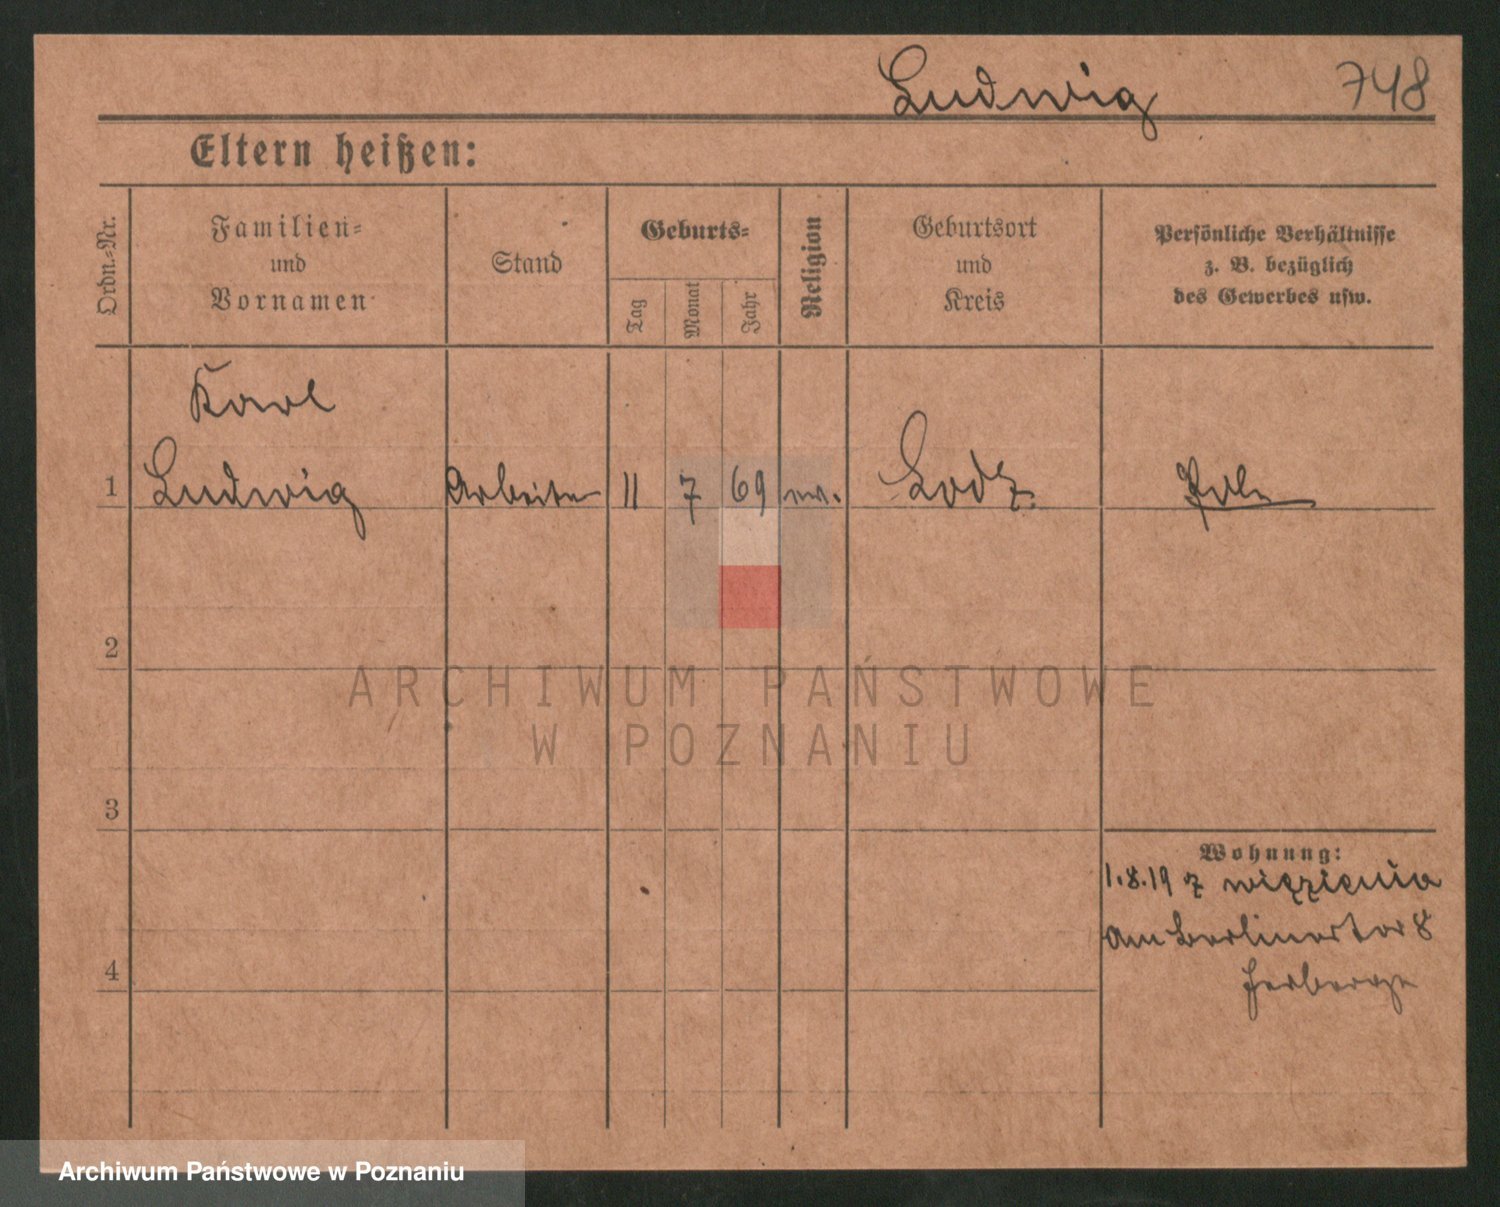 Ludwig 748
Eltern heißen:
Ordn.-Nr.
Familien-
und
Vornamen
Stand
Geburts-
Tag
Monat
Jahr
Religion
Geburtsort
und
Kreis
Persönliche Verhältnisse
z. B. bezüglich
des Gewerbes usw.
Karl
1 Ludwig Arbeiter 11 7 69 ev. Lodz. Pole
2
ARCHIWUM PAŃSTWOWE
W POZNANIU
3
Wohnung:
1.8.19 z więzienia
Am Berliner tor 8
Herberge
4
Archiwum Państwowe w Poznaniu